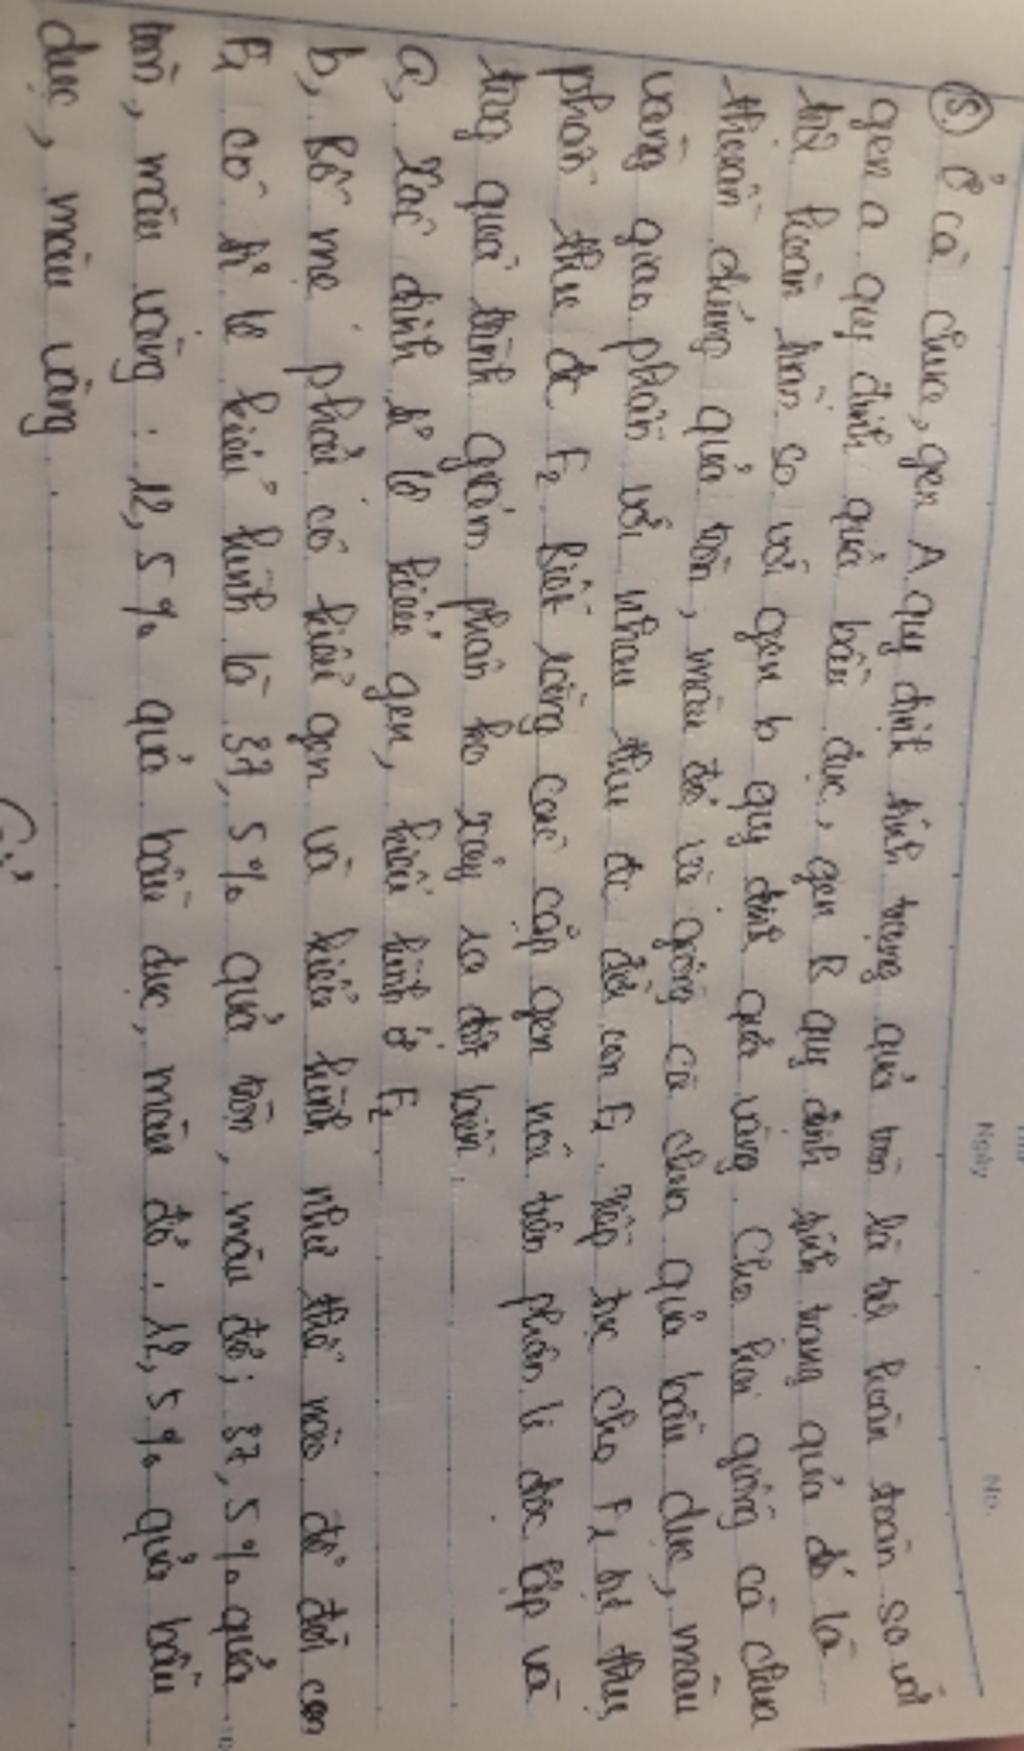 Ngày
No.
⑤ Ở cà chua, gen A quy định tính trạng quả tròn là trội hoàn toàn so với
gen a quy định quả bầu dục, gen B quy định tính trạng quả đỏ là
trội hoàn toàn so với gen b quy định quả vàng. Cho hai giống cà chua
thuần chủng quả tròn, màu đỏ và giống cà chua quả bầu dục, màu
vàng giao phấn với nhau thu đc đời con F1. Tiếp tục cho F1 tự thụ
phấn thu đc F2. Biết rằng các cặp gen nói trên phân li độc lập và
trong quá trình giảm phân ko xảy ra đột biến.
a, Xác định tỉ lệ kiểu gen, kiểu hình ở F2
b, Bố mẹ phải có kiểu gen và kiểu hình như thế nào để đời con
F1 có tỉ lệ kiểu hình là 37,5% quả tròn, màu đỏ; 37,5% quả
tròn, màu vàng: 12,5% quả bầu dục, màu đỏ: 12,5% quả bầu
dục, màu vàng.